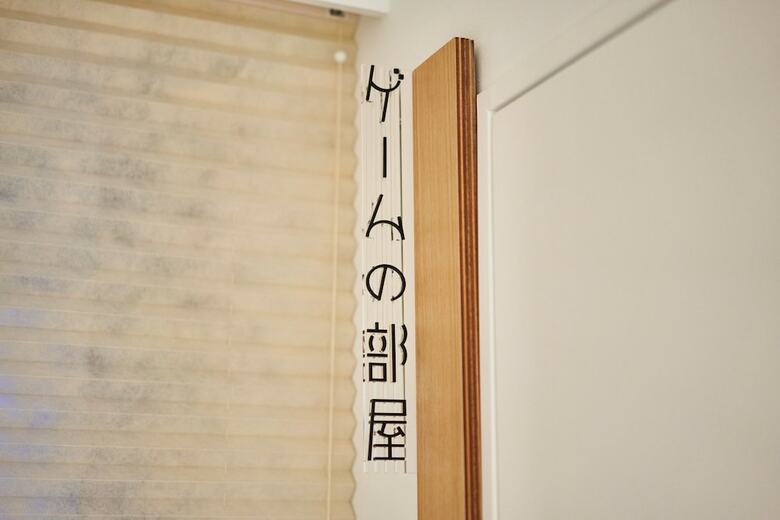 ゲームの部屋